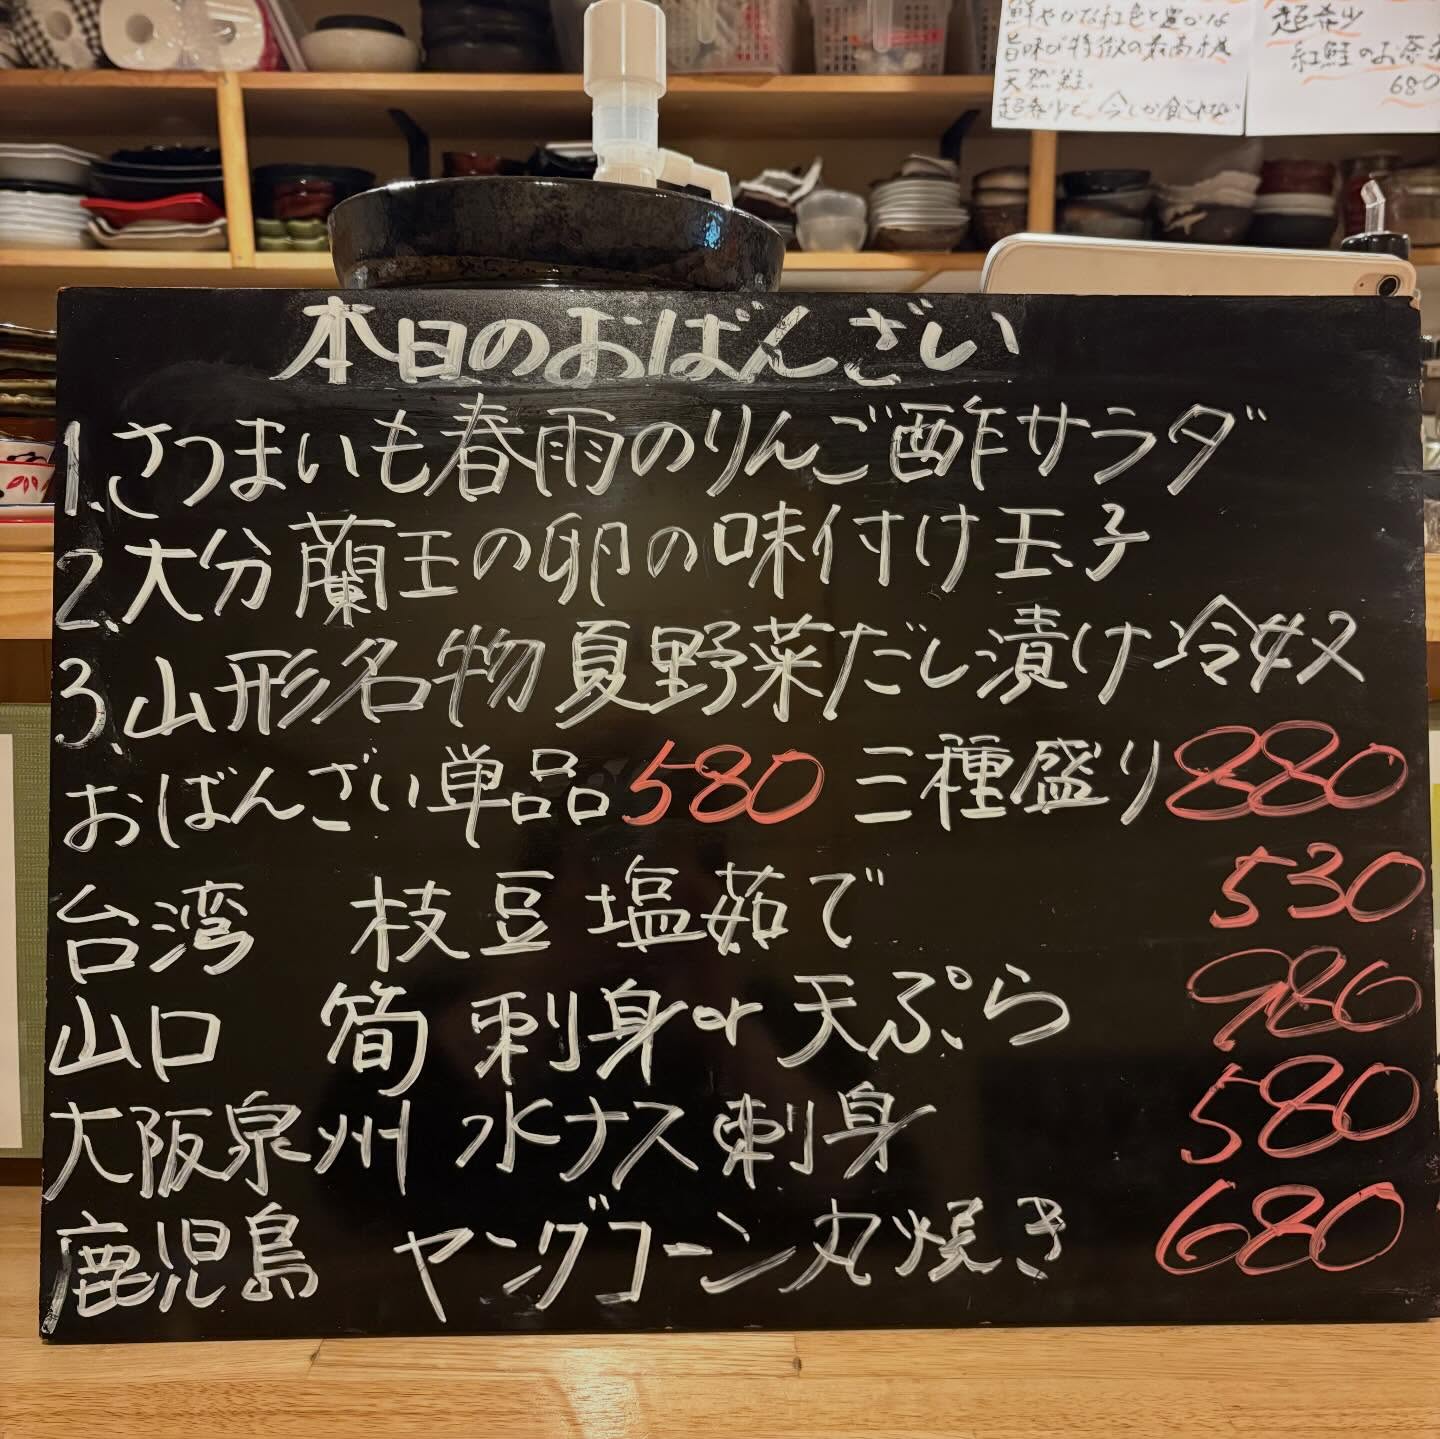 鮮やかな紅色と豊かな
旨味が特徴の最高級
天然鮭。
超希少で、今しか食べれない
超希少
紅鮭のお茶
680
本日のおばんざい
1.さつまいも春雨のりんご酢サラダ
2.大分蘭王の卵の味付け玉子
3.山形名物夏野菜だし漬け冷奴
おばんざい単品580 三種盛り880
台湾 枝豆塩茹で 530
山口 筍 刺身or天ぷら 980
大阪泉州 水ナス刺身 580
鹿児島 ヤングコーン丸焼き 680